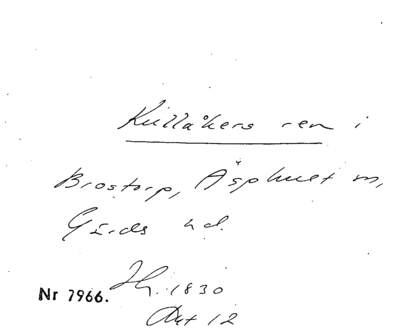 Killåkers ren i
Brostorp, Äsphult sn,
Gärds hd.
Nr 7966.
1830
Akt 12